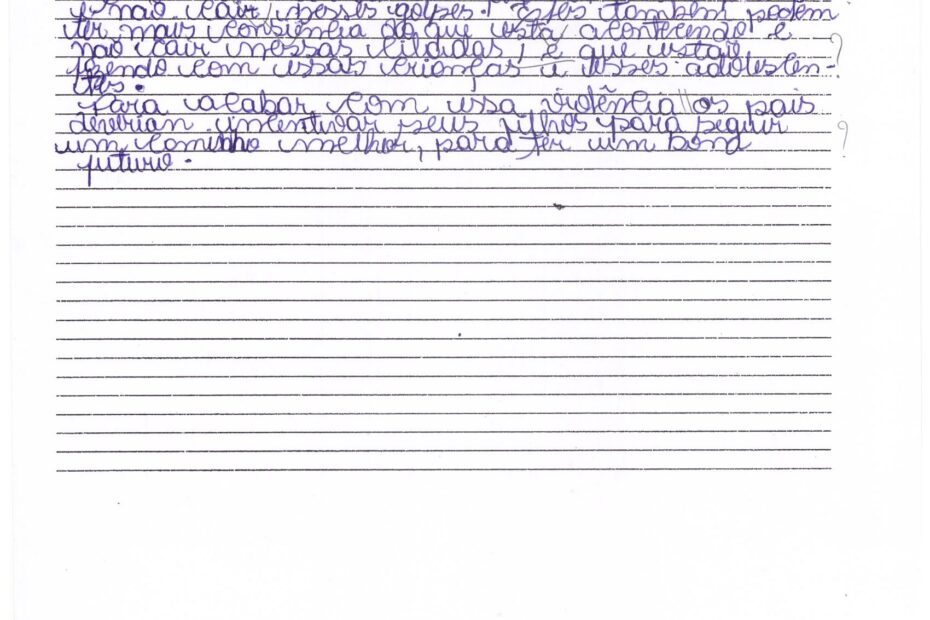 e não cair nesses golpes. Eles também podem
ter mais consiência do que está acontecendo e
não cair nessas cildidas, e que estão
fzendo com essas crianças e esses adolescen-
tes.
Para acabar com essa violência os pais
deverian incentivar seus filhos para seguir
um caminho melhor, para ter um bom
futuro.